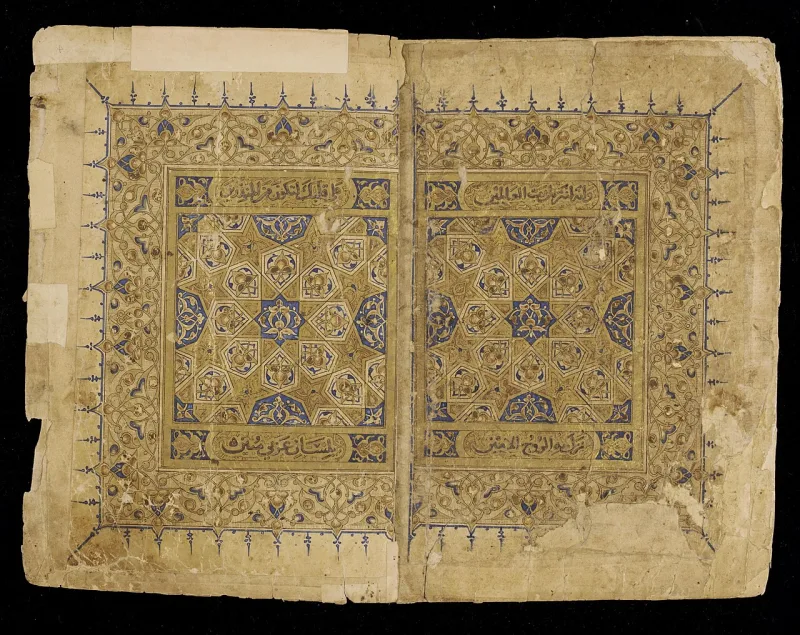 وانه لتنزيل رب العالمين
نزل به الروح الامين
على قلبك لتكون من المنذرين
بلسان عربي مبين